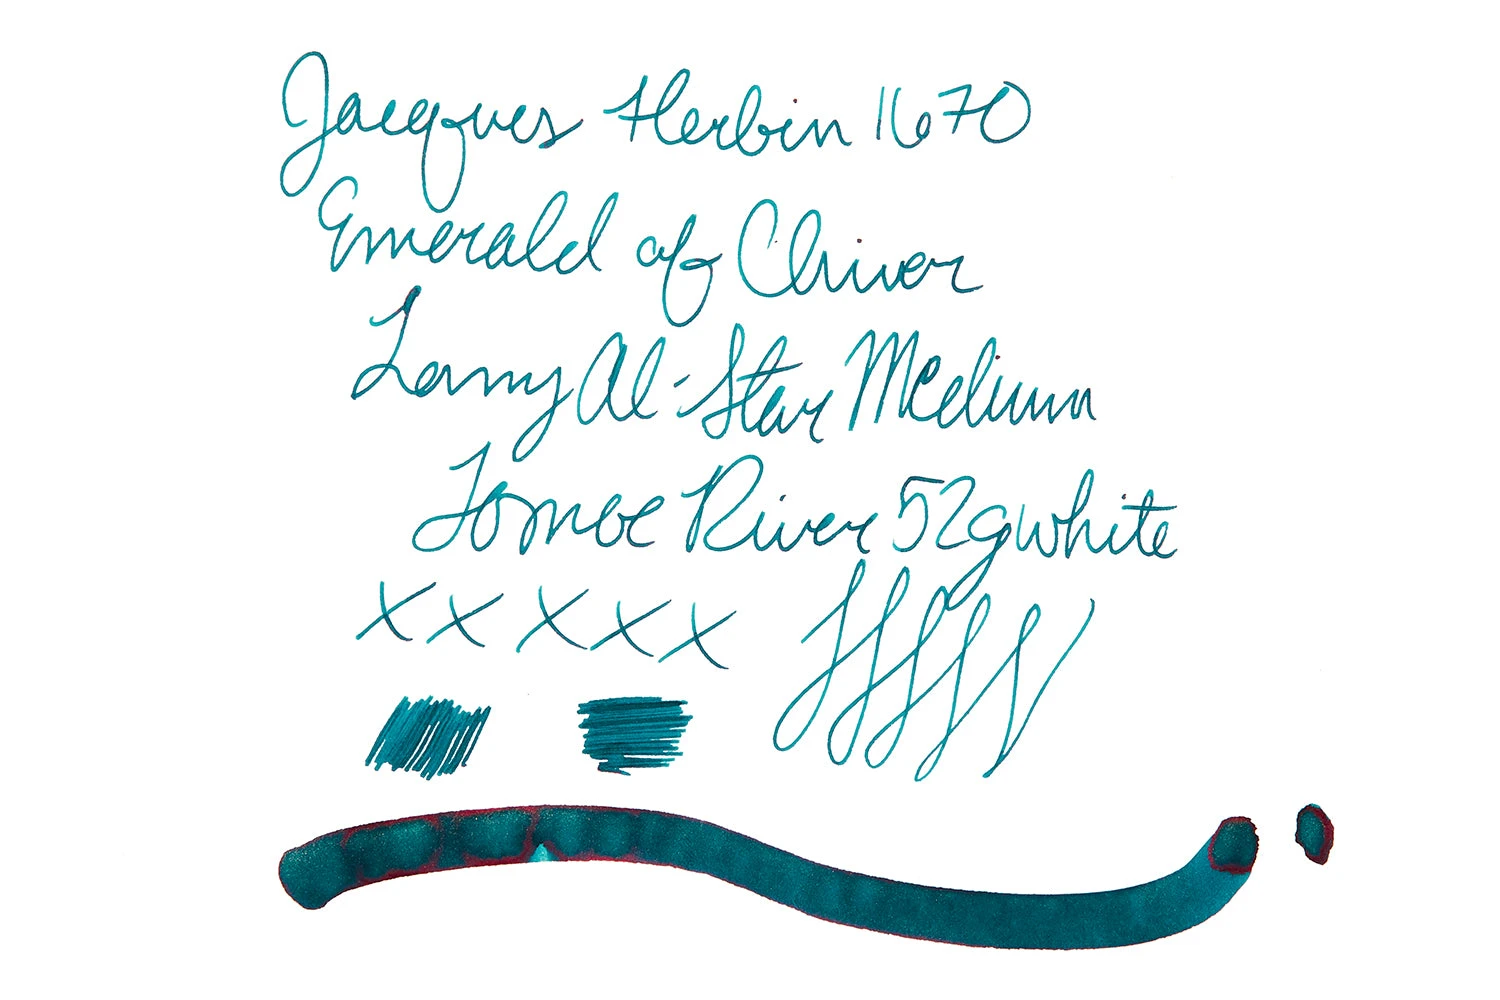 Jacques Herbin 1670
Emerald of Chivor
Lamy Al-Star Medium
Tomoe River 52g white
x x x x x